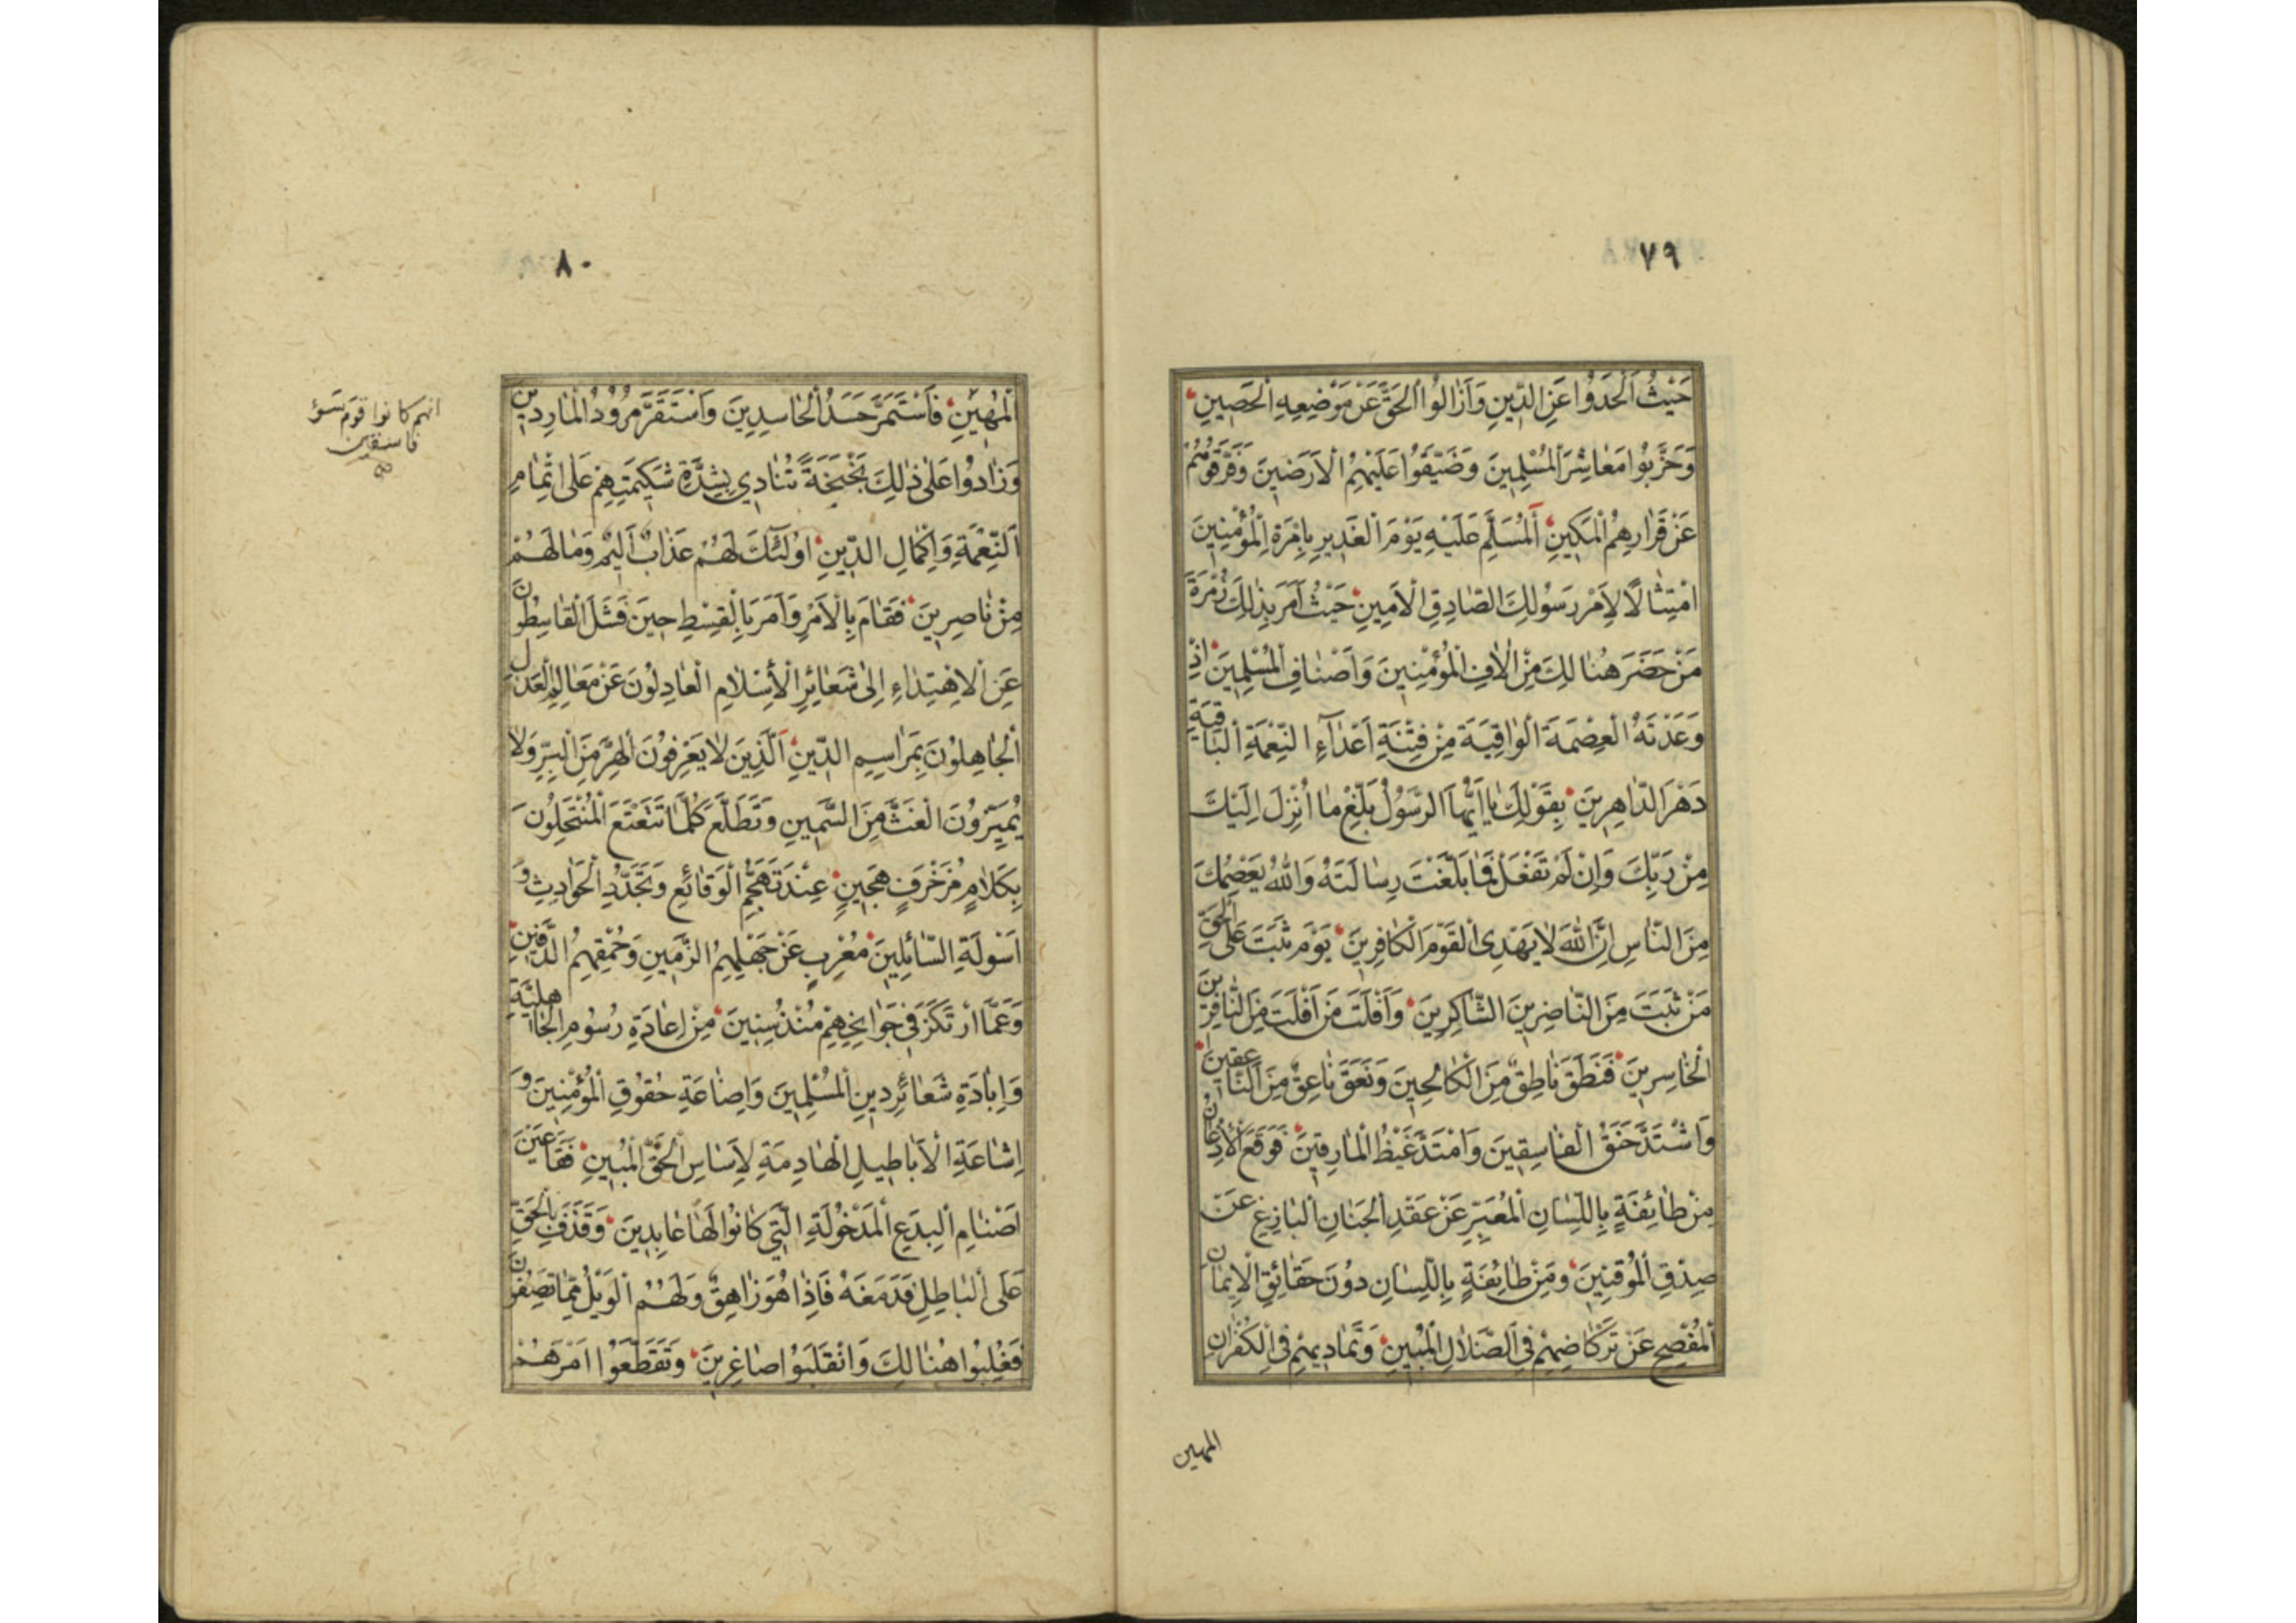 ٧٩
حَيْثُ اَلْحَدُوا عَنِ الدّينِ وَاَزَالُوا الْحَقَّ عَنْ مَوْضِعِهِ الْحَصِينِ
وَحَزَّبُوا مَعَاشِرَ الْمُسْلِمِينَ وَضَيَّقُوا عَلَيْهِمُ الْاَرَضِينَ وَفَرَّقُوهُمْ
عَنْ قَرَارِهِمُ الْمَكِينِ اَلْمُسَلَّمِ عَلَيْهِ يَوْمَ الْغَدِيرِ بِاِمْرَةِ الْمُؤْمِنِينَ
امْتِثَالًا لِاَمْرِ رَسُولِكَ الصَّادِقِ الْاَمِينِ حَيْثُ اَمَرَ بِذٰلِكَ زُمْرَةَ
مَنْ حَضَرَ هُنَالِكَ مِنْ اٰلَافِ الْمُؤْمِنِينَ وَاَصْنَافِ الْمُسْلِمِينَ اِذْ
وَعَدْتَهُ الْعِصْمَةَ الْوَاقِيَةَ مِنْ فِتْنَةِ اَعْدَآءِ النِّعْمَةِ الْبَاقِيَةِ
دَهْرَ الدَّاهِرِينَ بِقَوْلِكَ يَا اَيُّهَا الرَّسُولُ بَلِّغْ مَا اُنْزِلَ اِلَيْكَ
مِنْ رَبِّكَ وَاِنْ لَمْ تَفْعَلْ فَمَا بَلَّغْتَ رِسَالَتَهُ وَاللهُ يَعْصِمُكَ
مِنَ النَّاسِ اِنَّ اللهَ لَا يَهْدِى الْقَوْمَ الْكَافِرِينَ يَوْمَ ثَبَتَ عَلَى الْحَقِّ
مَنْ ثَبَتَ مِنَ النَّاصِرِينَ الشَّاكِرِينَ وَاَفْلَتَ مَنْ اَفْلَتَ مِنَ النَّافِرِينَ
الْخَاسِرِينَ فَنَطَقَ نَاطِقٌ مِنَ الْكَالِحِينَ وَنَعَقَ نَاعِقٌ مِنَ النَّاعِقِينَ
وَاشْتَدَّ حَنَقُ الْفَاسِقِينَ وَامْتَدَّ غَيْظُ الْمَارِقِينَ فَوَقَعَ الْاِذْعَانُ
مِنْ طَائِفَةٍ بِاللِّسَانِ الْمُعَبِّرِ عَنْ عَقْدِ الْجَنَانِ الْبَازِغِ عَنْ
صِدْقِ الْمُوقِنِينَ وَمِنْ طَائِفَةٍ بِاللِّسَانِ دُونَ حَقَائِقِ الْاِيمَانِ
الْمُفْصِحِ عَنْ تَرَكَاضِهِمْ فِى الضَّلَالِ الْمُبِينِ وَتَمَادِيهِمْ فِى الْكُفْرَانِ
المهين
٨٠
الْمُهِينِ فَاسْتَمَرَّ حَسَدُ الْحَاسِدِينَ وَاسْتَقَرَّ مُرُودُ الْمَارِدِينَ
وَزَادُوا عَلٰى ذٰلِكَ بَخْبَخَةً تُنَادِى بِشِدَّةِ شَكِيمَتِهِمْ عَلَى اِتْمَامِ
النِّعْمَةِ وَاِكْمَالِ الدّينِ اُولٰئِكَ لَهُمْ عَذَابٌ اَلِيمٌ وَمَا لَهُمْ
مِنْ نَاصِرِينَ فَقَامَ بِالْاَمْرِ وَاَمَرَ بِالْقِسْطِ حِينَ فَشَلَ الْقَاسِطُونَ
عَنِ الْاِهْتِدَاءِ اِلَى شَعَائِرِ الْاِسْلَامِ الْعَادِلُونَ عَنْ مَعَالِمِ الْعَدْلِ
الْجَاهِلُونَ بِمَرَاسِيمِ الدّينِ اَلَّذِينَ لَا يَعْرِفُونَ الْهِرَّ مِنَ الْبِرِّ وَلَا
يُمَيِّزُونَ الْغَثَّ مِنَ السَّمِينِ وَتَطَلَّعَ كُلَّمَا تَتَعْتَعَ الْمُنْتَحِلُونَ
بِكَلَامٍ مُزَخْرَفٍ هَجِينٍ عِنْدَ تَهَجُّمِ الْوَقَائِعِ وَتَجَدُّدِ الْحَوَادِثِ وَ
اَسْوِلَةِ السَّائِلِينَ مُعْرِبٍ عَنْ جَهْلِهِمُ الزَّمِينِ وَحُمْقِهِمُ الدَّفِينِ
وَعَمَّا ارْتَكَزَ فِى جَوَانِحِهِمْ مُنْذُ سِنِينَ مِنْ اِعَادَةِ رُسُومِ الْجَاهِلِيَّةِ
وَاِبَادَةِ شَعَائِرِ دِينِ الْمُسْلِمِينَ وَاِضَاعَةِ حُقُوقِ الْمُؤْمِنِينَ وَ
اِشَاعَةِ الْاَبَاطِيلِ الْهَادِمَةِ لِاَسَاسِ الْحَقِّ الْمُبِينِ فَقَاَ عَيْنَ
اَصْنَامِ الْبِدَعِ الْمَدْخُولَةِ الَّتِى كَانُوا لَهَا عَابِدِينَ وَقَذَفَ بِالْحَقِّ
عَلَى الْبَاطِلِ فَدَمَغَهُ فَاِذَا هُوَ زَاهِقٌ وَلَهُمُ الْوَيْلُ مِمَّا تَصِفُونَ
فَغُلِبُوا هُنَالِكَ وَانْقَلَبُوا صَاغِرِينَ وَتَقَطَّعُوا اَمْرَهُمْ
انهم كانوا قوم سوء
فاسقين